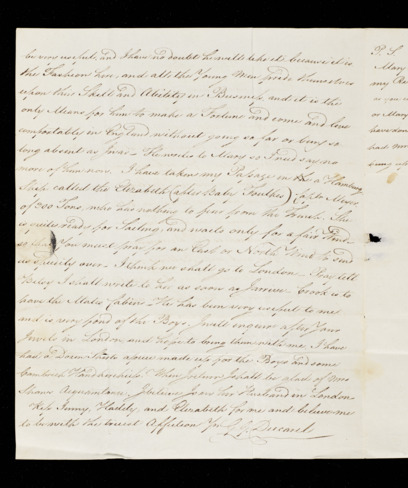 be very useful, and I have no doubt he will take it because it is
the Fashion here, and all the Young Men pride themselves
upon their Skill and Ability in Business and it is the
only Means for him to make a Fortune and come and live
comfortably in England without going so far or being so
long absent as
He writes to Mary so I need say no
more of him now. I have taken my Passage in a Hamburg
Ship called the Elizabeth (after Baby
) Capt. Meyer
of 300 Tons, who has nothing to fear from the French. She
is quite ready for Sailing, and waits only for a fair Wind
so that You must pray for an East or North Wind to send
us speedily over. I think we shall go to London. Pray tell
Betsy I shall write to her as soon as
Cook is to
have the Mates Cabin. He has been very useful to me
and is very fond of the Boys. I will enquire after Your
Jewels in London and hope to bring them with me. I have
had a
made up for the Boys and some
Cambrick Handkerchiefs. When
I shall be glad of
Acquaintance. I believe
her Husband in London.
Kiss Fanny, Harriet, and Elizabeth for me and believe me
to be with the truest Affection Yrs
P.S.
Mary
my
or Mary
have don
had